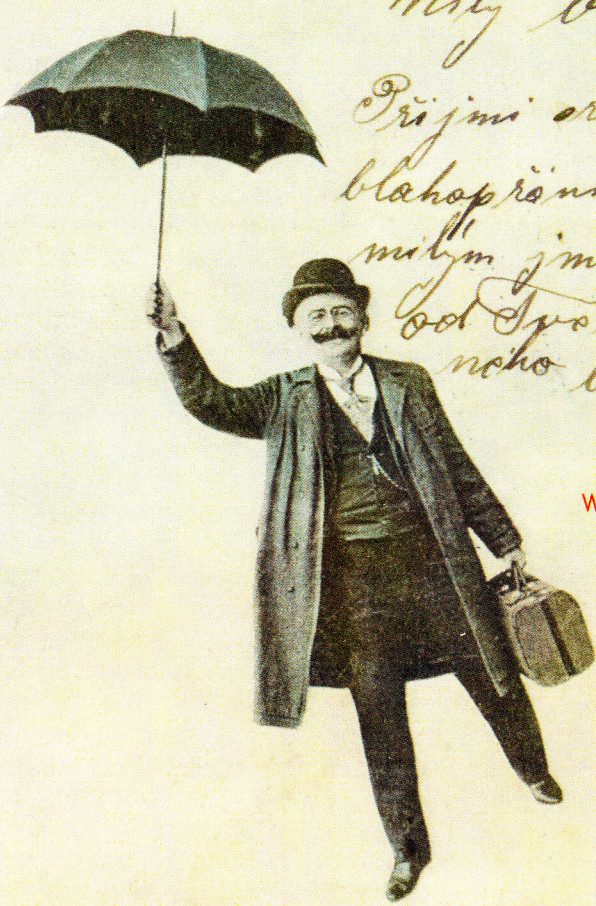 Milý
Přijmi
blahopřán
milým jm
od Tvo
ného
W